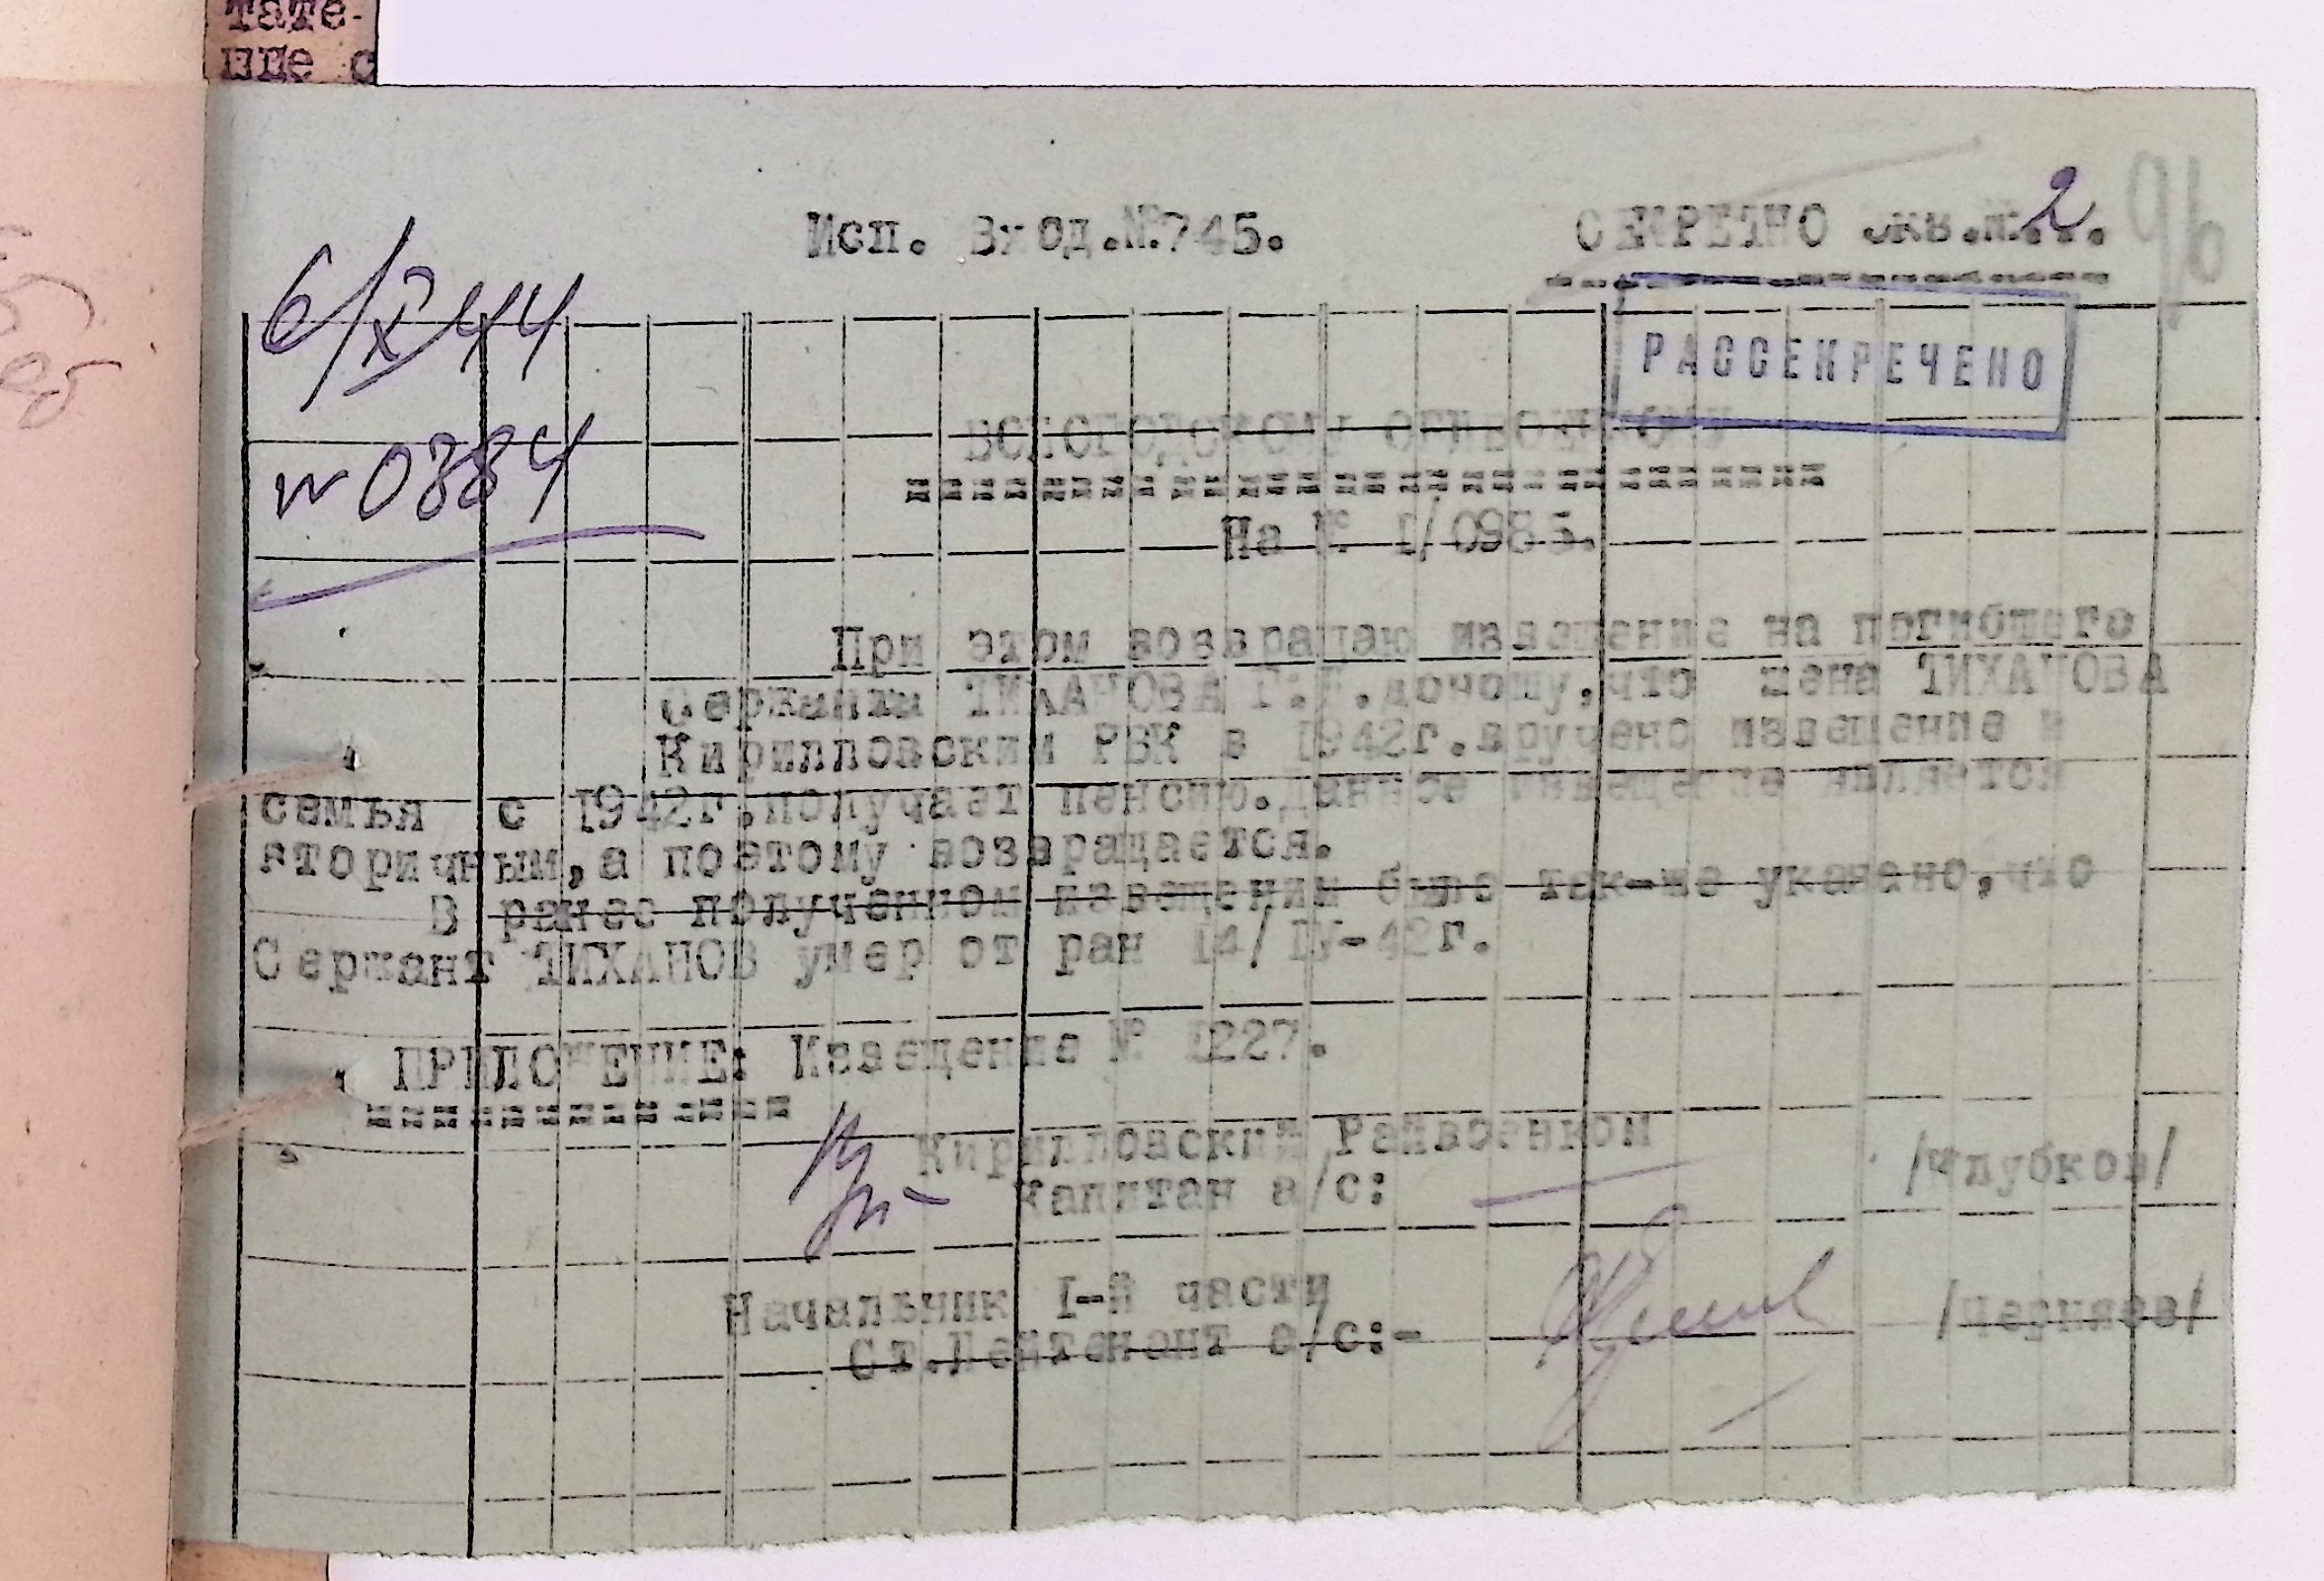 тате-
ние с
Исп. Вход.№745.
СЕКРЕТНО экз.№.2.
96
6/X 44
РАССЕКРЕЧЕНО
ВОЛОГОДСКОМУ ОБЛВОЕНКОМУ
№ 0884
На № 1/0985.
При этом возвращаю извещение на погибшего
Сержанта ТИХАНОВА доношу,что жена ТИХАНОВА
Кирилловским РВК в 1942г.вручено извещение и
семья с 1942г.получает пенсию.Данное извещение является
вторичным,а поэтому возвращается.
В ранее полученном извещении было так-же указано,что
Сержант ТИХАНОВ умер от ран 14/IУ-42г.
ПРИЛОЖЕНИЕ: Извещение № 1227.
Кирилловский Райвоенком
капитан а/с:
Начальник I-й части
Ст.Лейтенант а/с:-